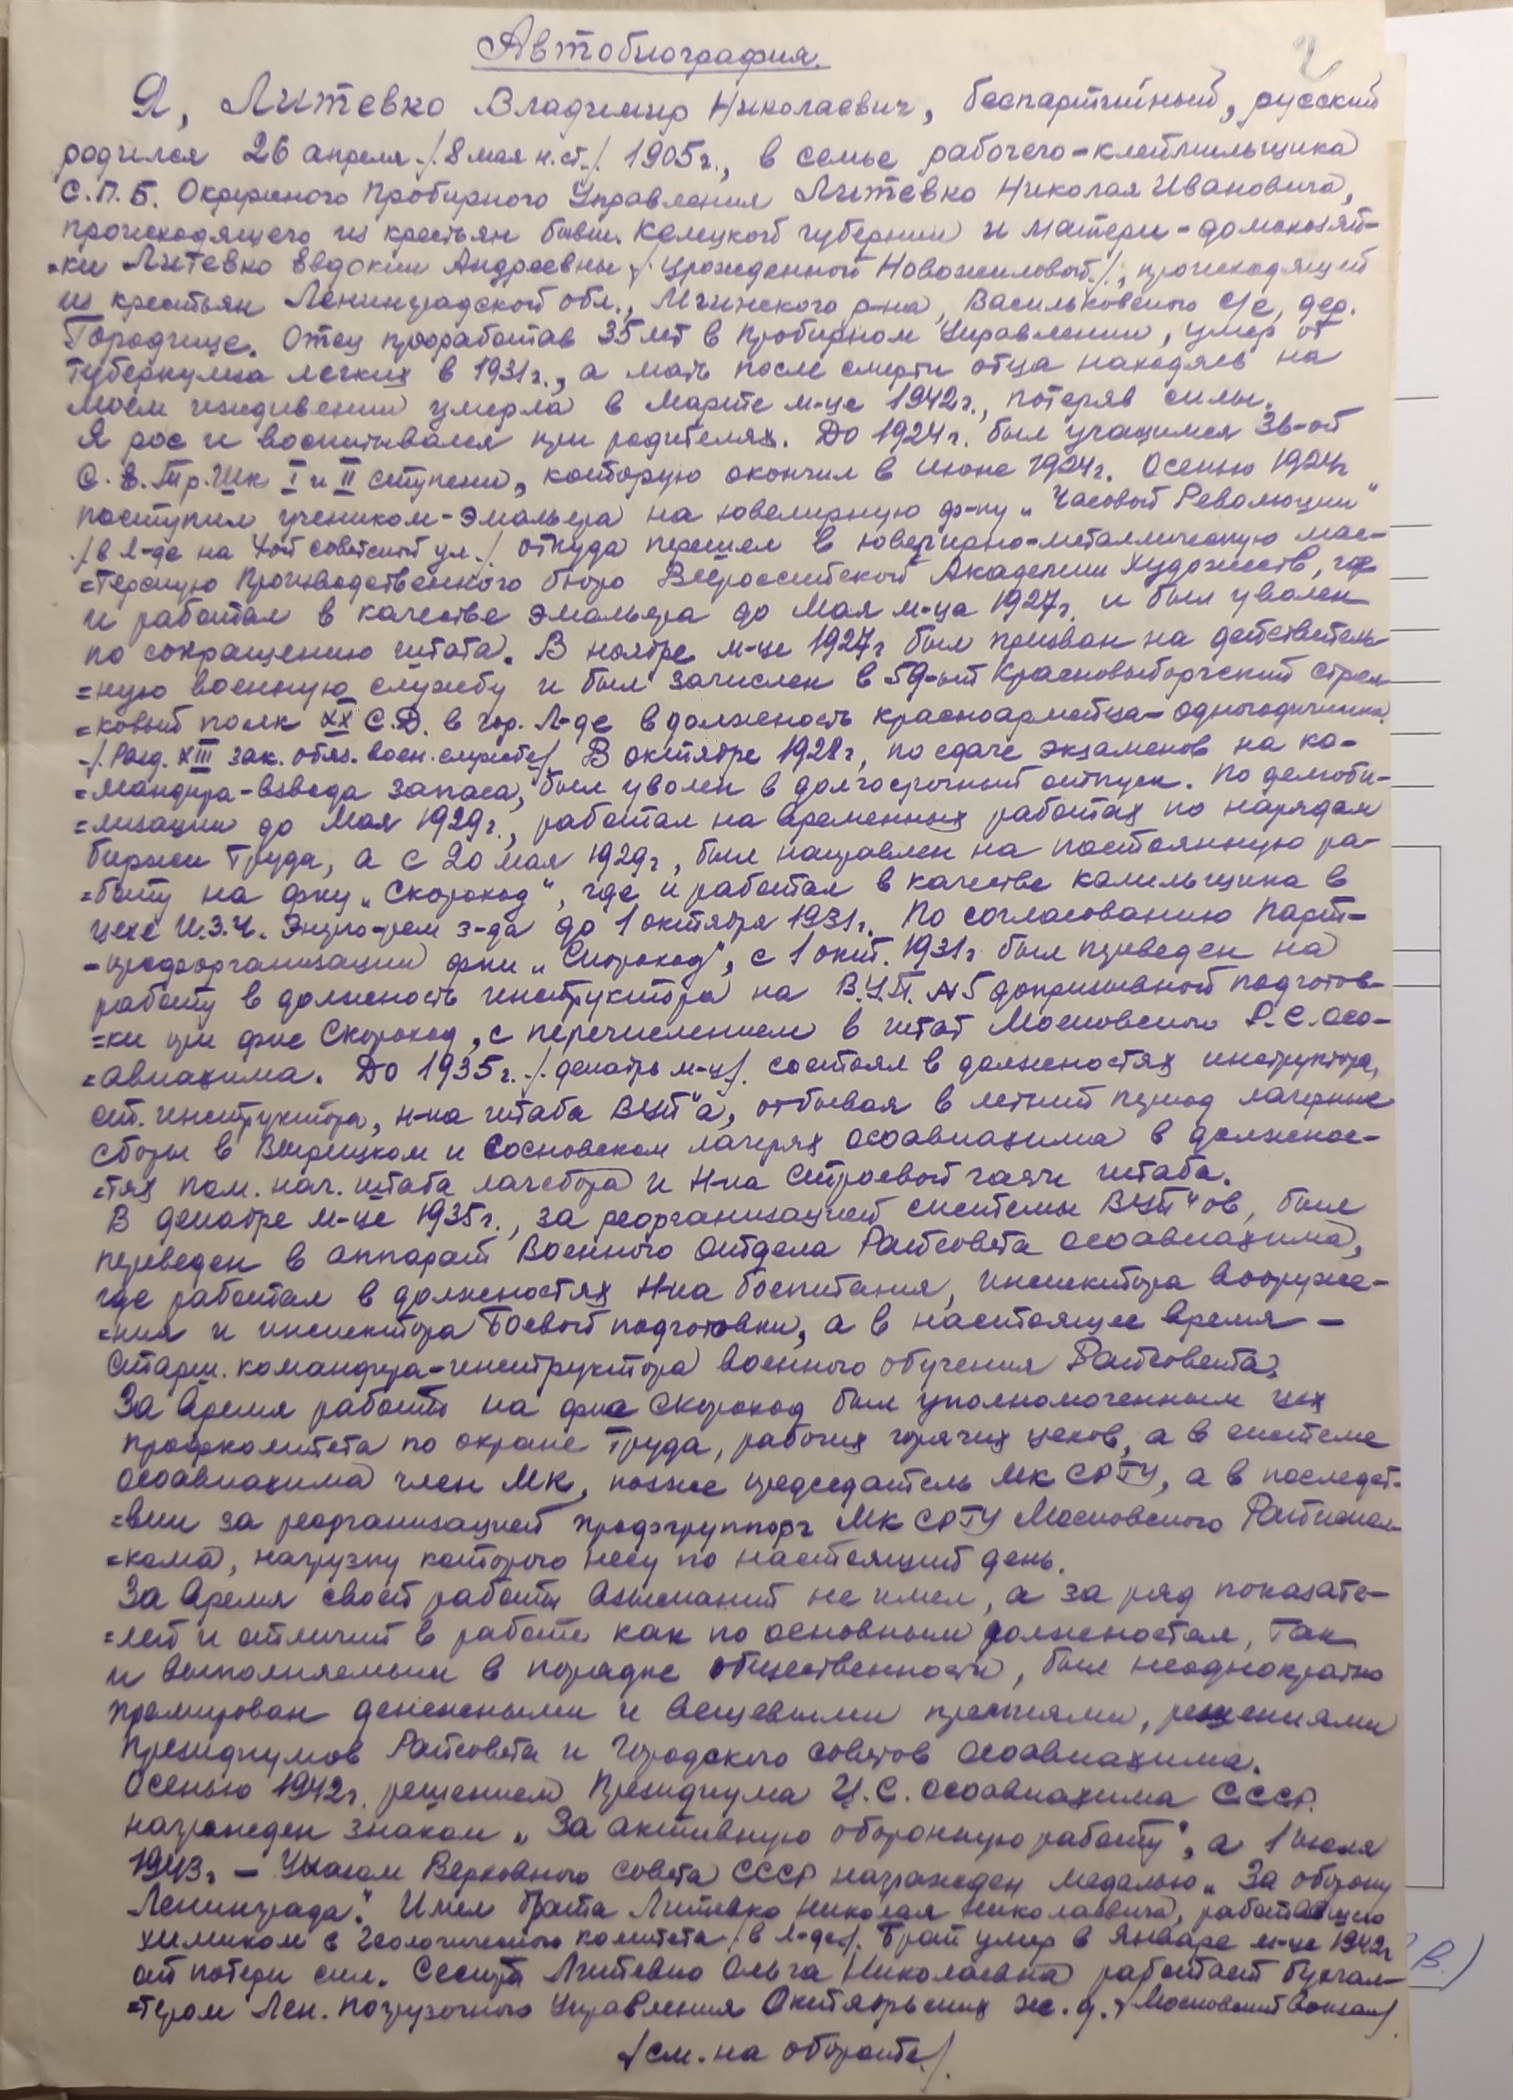 2
Автобиография.
Я, Литевко Владимир Николаевич, беспартийный, русский
родился 26 апреля /8 мая н.ст./ 1905г., в семье рабочего-клеймильщика
С.П.Б. Окружного Пробирного Управления Литевко Николая Ивановича,
происходящего из крестьян бывш. Келецкой губернии и матери - домохозяй-
-ки Литевко Евдокии Андреевны /. урожденной Новожиловой./, происходящей
из крестьян Ленинградской обл., Мгинского р-на, Васильковского с/с, дер.
Городище. Отец проработав 35 лет в Пробирном Управлении, умер от
туберкулеза легких в 1931г., а мать после смерти отца находясь на
моем иждивении умерла в марте м-це 1942г., потеряв силы.
Я рос и воспитывался при родителях. До 1924г. был учащимся 36-ой
С.Е.Тр.Шк I и II ступени, которую окончил в июне 1924г. Осенью 1924г
поступил учеником-эмальера на ювелирную ф-ку „Часовой Революции"
/в Л-де на 4ой советской ул./ откуда перешел в ювелирно-металлическую мас-
=терскую Производственного бюро Всероссийской Академии Художеств, где
и работал в качестве эмальера до Мая м-ца 1927г. и был уволен
по сокращению штата. В ноябре м-це 1927г был призван на действитель
=ную военную службу и был зачислен в 59-ый Красновыборгский стрел
=ковый полк XX С.Д. в гор. Л-де в должность красноармейца-одногодичника
-/. Разд. XIII зак. обяз. воен. службе/. В октябре 1928г, по сдаче экзаменов на ко-
=мандира-взвода запаса, был уволен в долгосрочный отпуск. По демоби-
=лизации до Мая 1929г., работал на временных работах по нарядам
биржи Труда, а с 20 мая 1929г, был направлен на постоянную ра-
=боту на фку „Скороход", где и работал в качестве калильщика в
цехе И.З.Ч. Энерго-рем з-да до 1 октября 1931г. По согласованию Парт-
-профорганизации фки „Скороход", с 1 окт. 1931г был переведен на
работу в должность инструктора на В.У.П. №5 допризывной подготов-
=ки при фке Скороход, с перечислением в штат Московского Р.С. Осо-
=авиахима. До 1935г. /. декабрь м-ц/. состоял в должностях инструктора,
ст. инструктора, н-ка штаба ВУП"а, отбывая в летний период лагерные
сборы в Вырицком и Сосновском лагерях Осоавиахима в должнос-
=тях пом. нач. штаба лагсбора и Н-ка Строевой части штаба.
В декабре м-це 1935г., за реорганизацией системы ВУП"ов, был
переведен в аппарат Военного Отдела Райсовета Осоавиахима,
где работал в должностях Н-ка боепитания, инспектора вооруже-
=ния и инспектора Боевой подготовки, а в настоящее время -
Старш. командира-инструктора военного обучения Райсовета.
За время работы на фке Скороход был уполномоченным цех
профкомитета по охране Труда, рабочих горячих цехов, а в системе
Осоавиахима член МК, позже председатель МК СРГУ, а в последст-
=вии за реорганизацией профгруппорг МК СРГУ Московского Райиспол-
=кома, нагрузку которого несу по настоящий день.
За время своей работы взысканий не имел, а за ряд показате-
=лей и отличий в работе как по основным должностям, так
и выполняемым в порядке общественности, был неоднократно
премирован денежными и вещевыми премиями, решениями
президиумов Райсовета и Городского советов Осоавиахима.
Осенью 1942г. решением Президиума Ц.С. Осоавиахима СССР.
награжден знаком „За активную оборонную работу", а 1 июля
1943г - Указом Верховного Совета СССР награжден медалью „За оборону
Ленинграда". Имел брата Литевко Николая Николаевича, работающего
химиком в Геологического комитета /в Л-де/. Брат умер в Январе м-це 1942г
от потери сил. Сестра Литевко Ольга Николаевна работает бухгал-
=тером Лен. Погрузочного Управления Октябрьских ж.д. /Московский вокзал/.
/см. на обороте/.
В.)